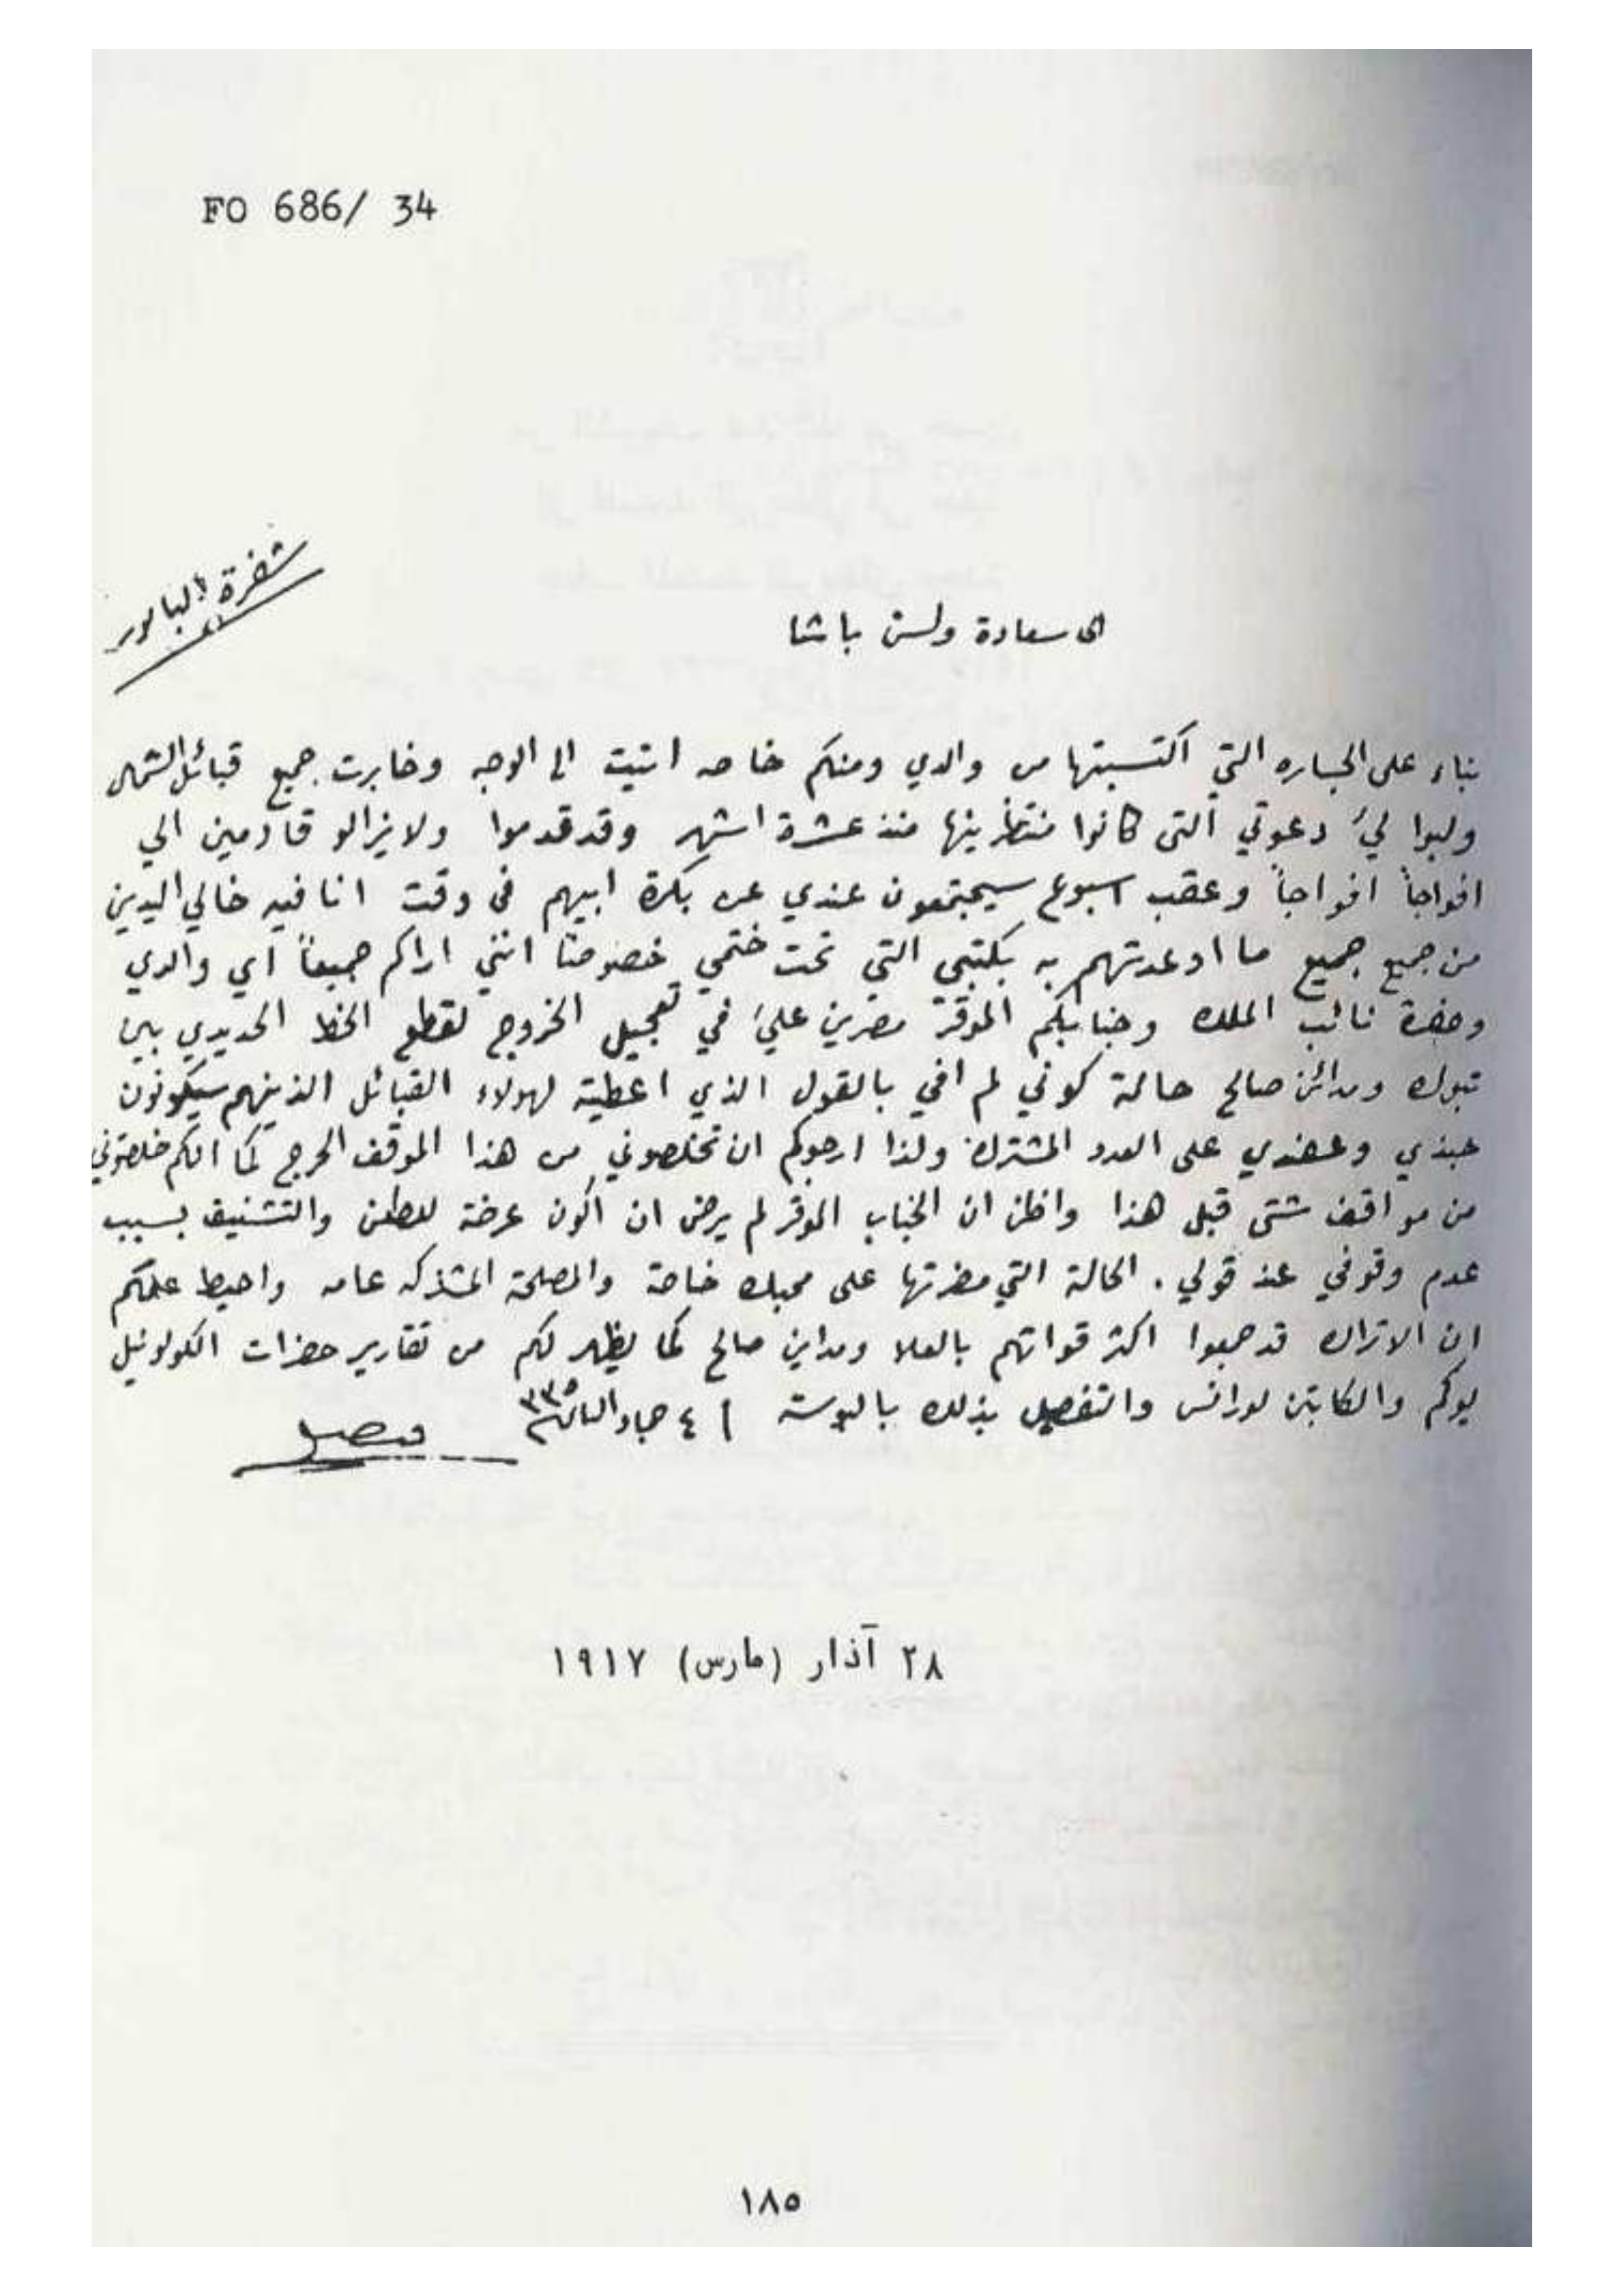 FO 686/ 34
شفرة البابور
الى سعادة ولسن باشا
بناء على الجساره التي اكتسبتها من والدي ومنكم خاصه اتيت الى الوجه وخابرت جميع قبائل الشمال
ولبوا ليَ دعوتي التى كانوا منتظرينها منذ عشرة اشهر وقد قدموا ولا يزالو قادمين الي
افواجاً افواجاً وعقب اسبوع سيجتمعون عندي عن بكرة ابيهم فى وقت انا فيه خالي اليدين
من جميع جميع ما اوعدتهم به بكتبي التي تحت ختمي خصوصاً انني اراكم جميعاً اي والدي
وحضرة نائب الملك وجنابكم الموقر مصرين عليَ في تعجيل الخروج لقطع الخط الحديدي بين
تبوك ومدائن صالح حالة كوني لم افي بالقول الذي اعطيته لهولاء القبائل الذينهم سيكونون
جندي وعضدي على العدو المشترك ولذا ارجوكم ان تخلصوني من هذا الموقف الحرج كما انكم خلصتوني
من مواقف شتى قبل هذا واظن ان الجناب الموقر لم يرض ان اكون عرضة للطعن والتشنيف بسبب
عدم وقوفي عند قولي . الحالة التي مضرتها على محبك خاصة والمصلحة المشتركه عامه واحيط علمكم
ان الاتراك قد جمعوا اكثر قواتهم بالعلا ومداين صالح كما يظهر لكم من تقارير حضرات الكولونيل
يوكم والكابتن لورانس والتفصيل بذلك بالبوسته ٤ جماد الثاني ٣٣٥
فيصل
٢٨ آذار (مارس) ١٩١٧
١٨٥